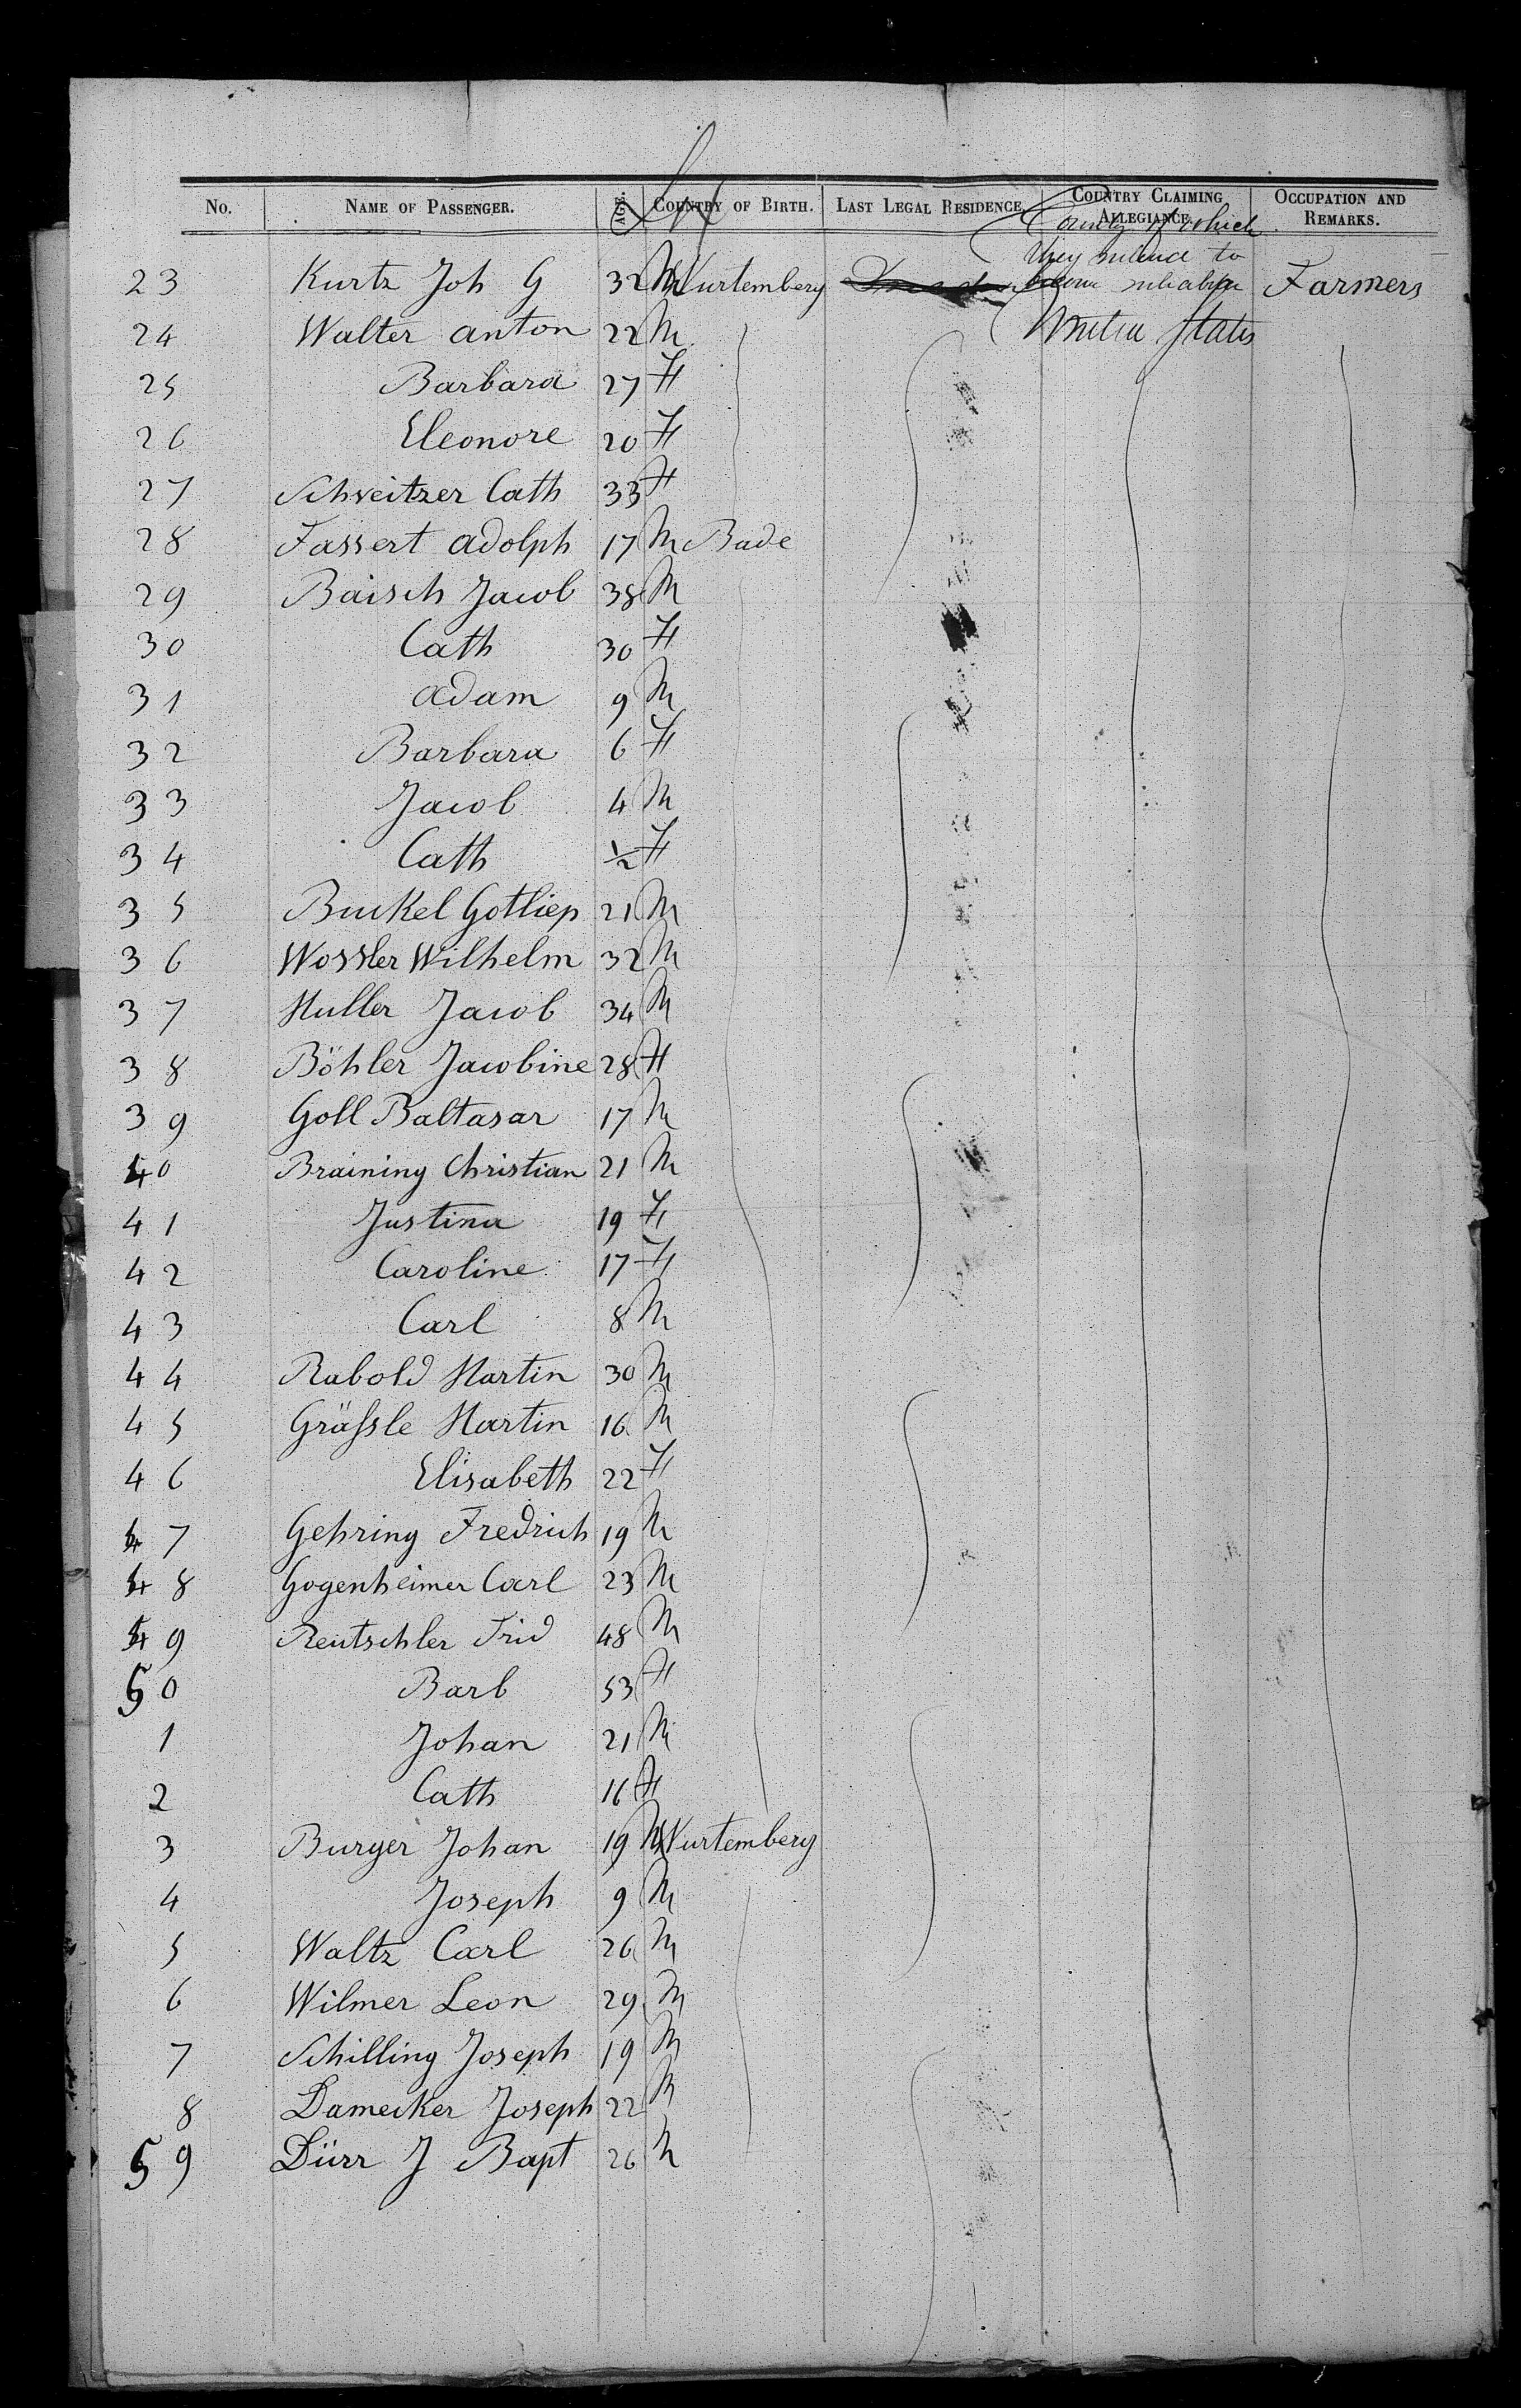 No. NAME OF PASSENGER. AGE. COUNTRY OF BIRTH. LAST LEGAL RESIDENCE. COUNTRY CLAIMING ALLEGIANCE. OCCUPATION AND REMARKS.
Sex
Country of which
they intend to
become inhabitan
United States
23 Kurtz Joh G 32 M Wurtemberg Farmers
24 Walter Anton 22 M
25 Barbara 27 F
26 Eleonore 20 F
27 Schweitzer Cath 33 F
28 Fassert Adolph 17 M Bade
29 Baisch Jacob 38 M
30 Cath 30 F
31 Adam 9 M
32 Barbara 6 F
33 Jacob 4 M
34 Cath 1/2 F
35 Buckel Gotliep 21 M
36 Wossler Wilhelm 32 M
37 Muller Jacob 34 M
38 Böhler Jacobine 28 F
39 Goll Baltasar 17 M
40 Braining Christian 21 M
41 Justina 19 F
42 Caroline 17 F
43 Carl 8 M
44 Rabold Martin 30 M
45 Gräfsle Martin 16 M
46 Elisabeth 22 F
47 Gehring Fredrich 19 M
48 Gogenheimer Carl 23 M
49 Reutschler Frid 48 M
50 Barb 53 F
1 Johan 21 M
2 Cath 16 F
3 Burger Johan 19 M Wurtemberg
4 Joseph 9 M
5 Waltz Carl 26 M
6 Wilmer Leon 29 M
7 Schilling Joseph 19 M
8 Damecker Joseph 22 M
59 Dürr J Bapt 26 M